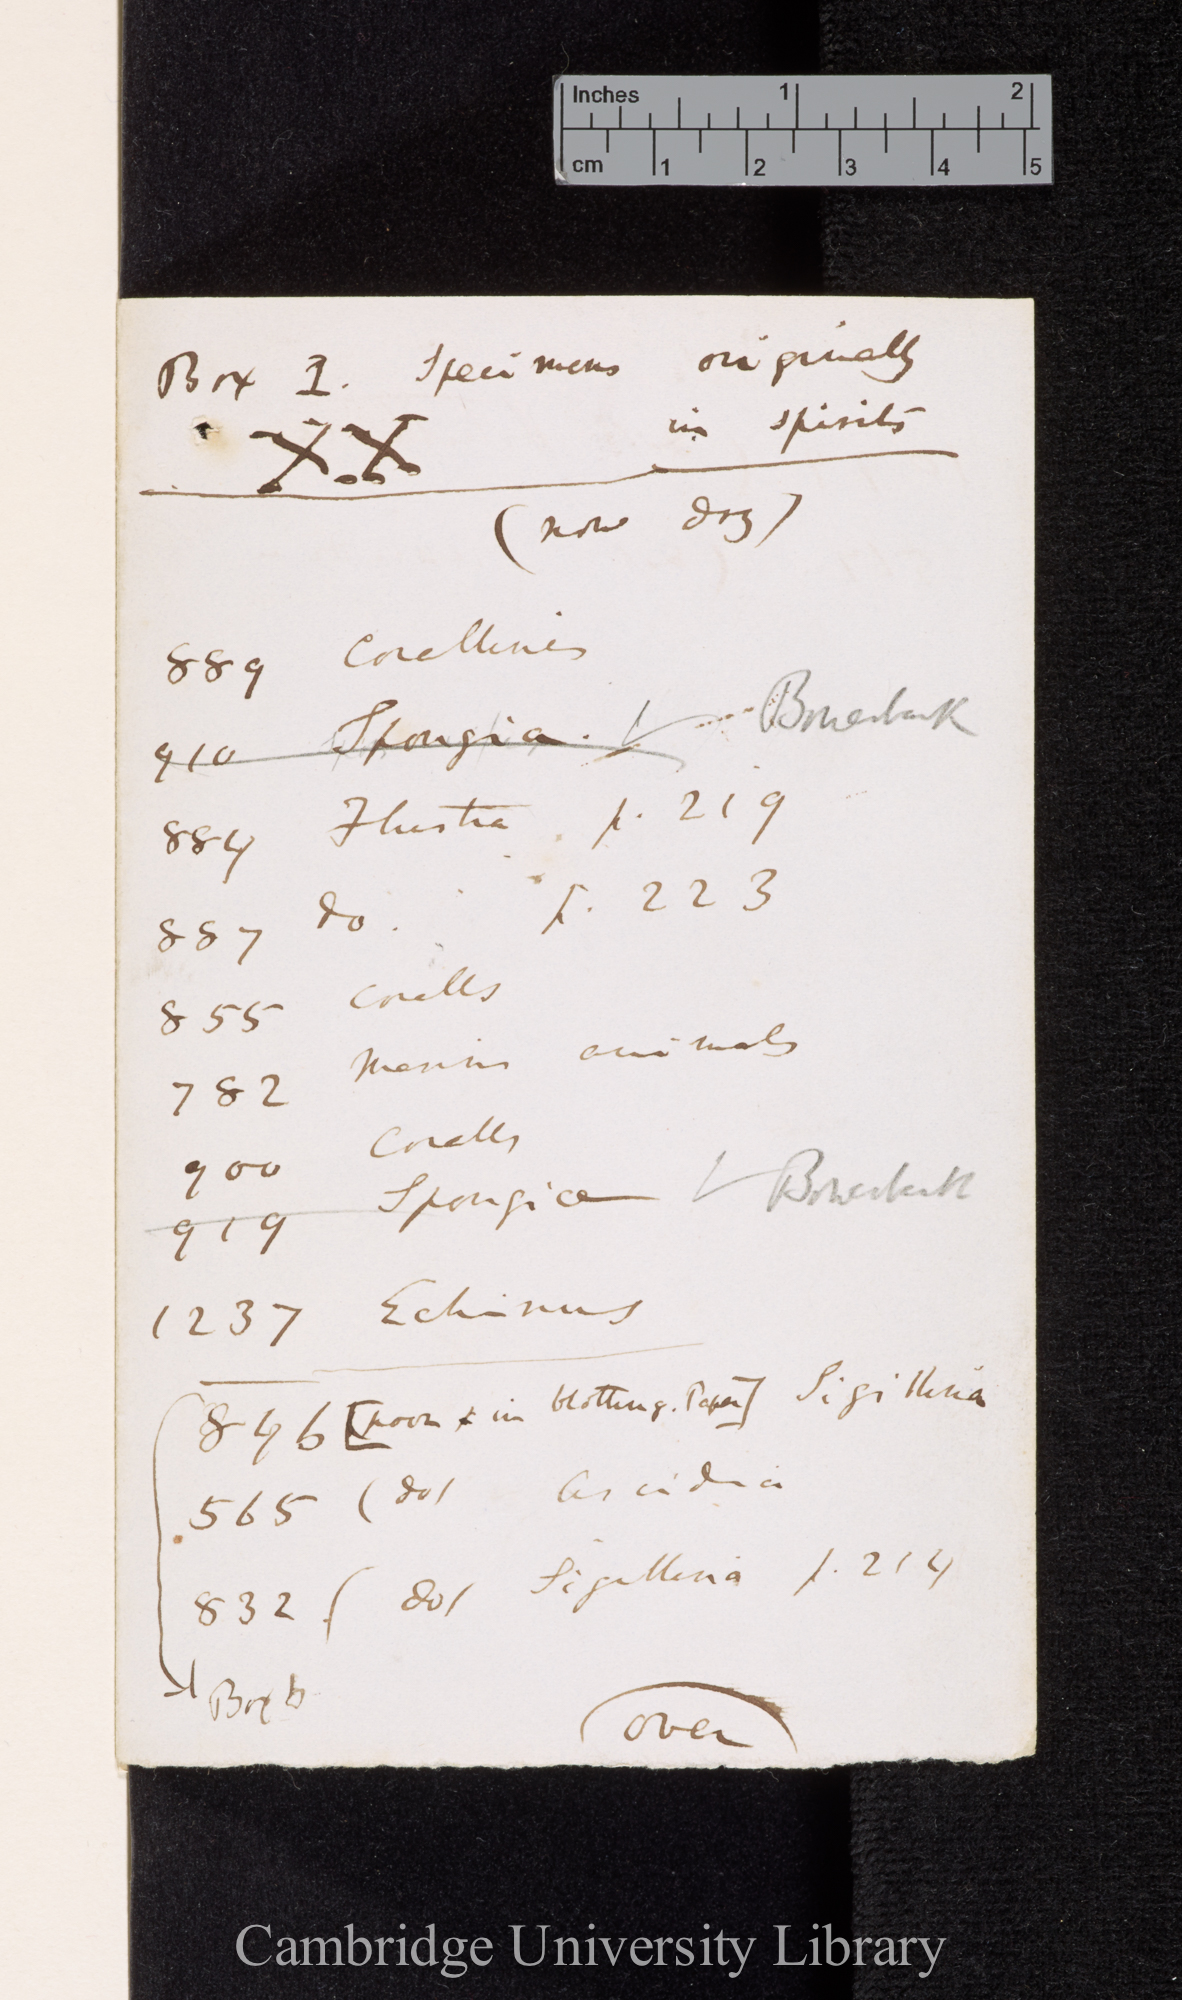 Inches 1 2
cm 1 2 3 4 5
Box 1. Specimens originally
XX in spirits
(now dry)
889 Corallines
910 Spongia. Bowerbank
884 Flustra p. 219
887 do. p. 223
855 Coralls
782 Marine animals
900 Coralls
919 Spongia Bowerbank
1237 Echinus
846 [now in blotting. Paper] Sigillina
565 (do) Ascidia
832 (do) Sigillina p. 214
Box b
over
Cambridge University Library